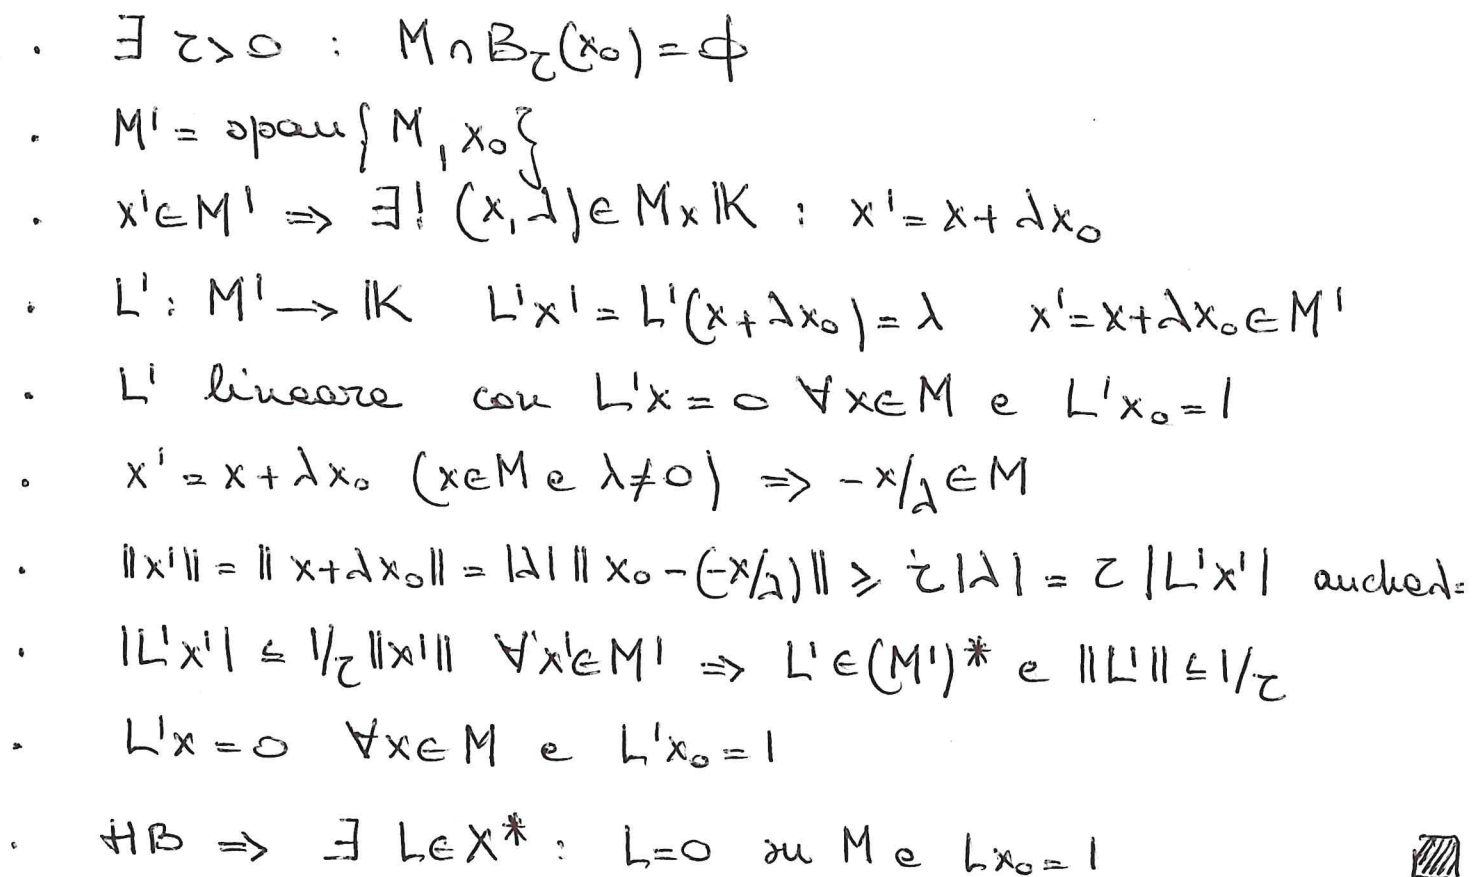 · ∃ r>0 : M ∩ B_r(x₀) = ∅
· M' = span{M, x₀}
· x' ∈ M' ⇒ ∃! (x,λ) ∈ M × 𝕂 : x' = x + λx₀
· L' : M' → 𝕂 L'x' = L'(x + λx₀) = λ x' = x + λx₀ ∈ M'
· L' lineare con L'x = 0 ∀x ∈ M e L'x₀ = 1
· x' = x + λx₀ (x ∈ M e λ ≠ 0) ⇒ -x/λ ∈ M
· ‖x'‖ = ‖x + λx₀‖ = |λ| ‖x₀ - (-x/λ)‖ ≥ r|λ| = r|L'x'| anche λ=
· |L'x'| ≤ 1/r ‖x'‖ ∀x' ∈ M' ⇒ L' ∈ (M')* e ‖L'‖ ≤ 1/r
· L'x = 0 ∀x ∈ M e L'x₀ = 1
· HB ⇒ ∃ L ∈ X* : L = 0 su M e Lx₀ = 1